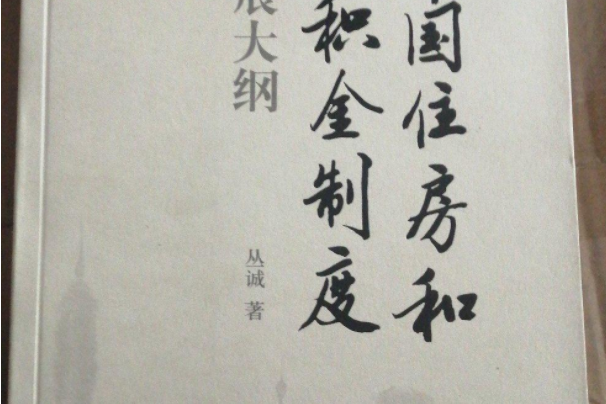 国住房和
积金制度
展大纲
丛诚 著